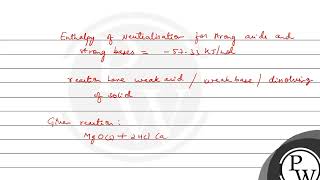 Enthalpy of Neutralisation for strong acids and
strong bases = -57.33 KJ/mol
reaction have weak acid / weak base / dissolving
of solid
Given reaction:
MgO(s) + 2HCl (a
PW